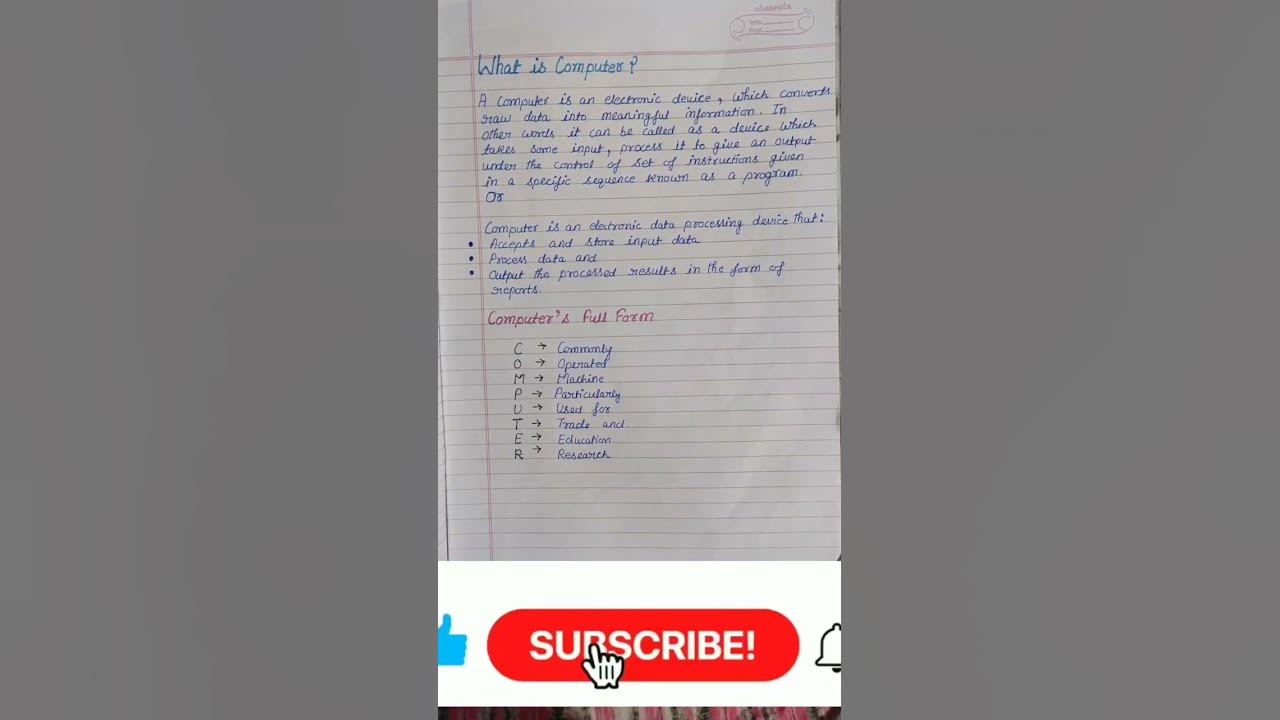 classmate
Date
Page
What is Computer?
A Computer is an electronic device, which converts
raw data into meaningful information. In
other words it can be called as a device which
takes some input, process it to give an output
under the control of set of instructions given
in a specific sequence known as a program.
Or
Computer is an electronic data processing device that:
• Accepts and store input data
• Process data and
• Output the processed results in the form of
reports.
Computer's Full Form
C → Commonly
O → Operated
M → Machine
P → Particularly
U → Used for
T → Trade and
E → Education
R → Research
SUBSCRIBE!